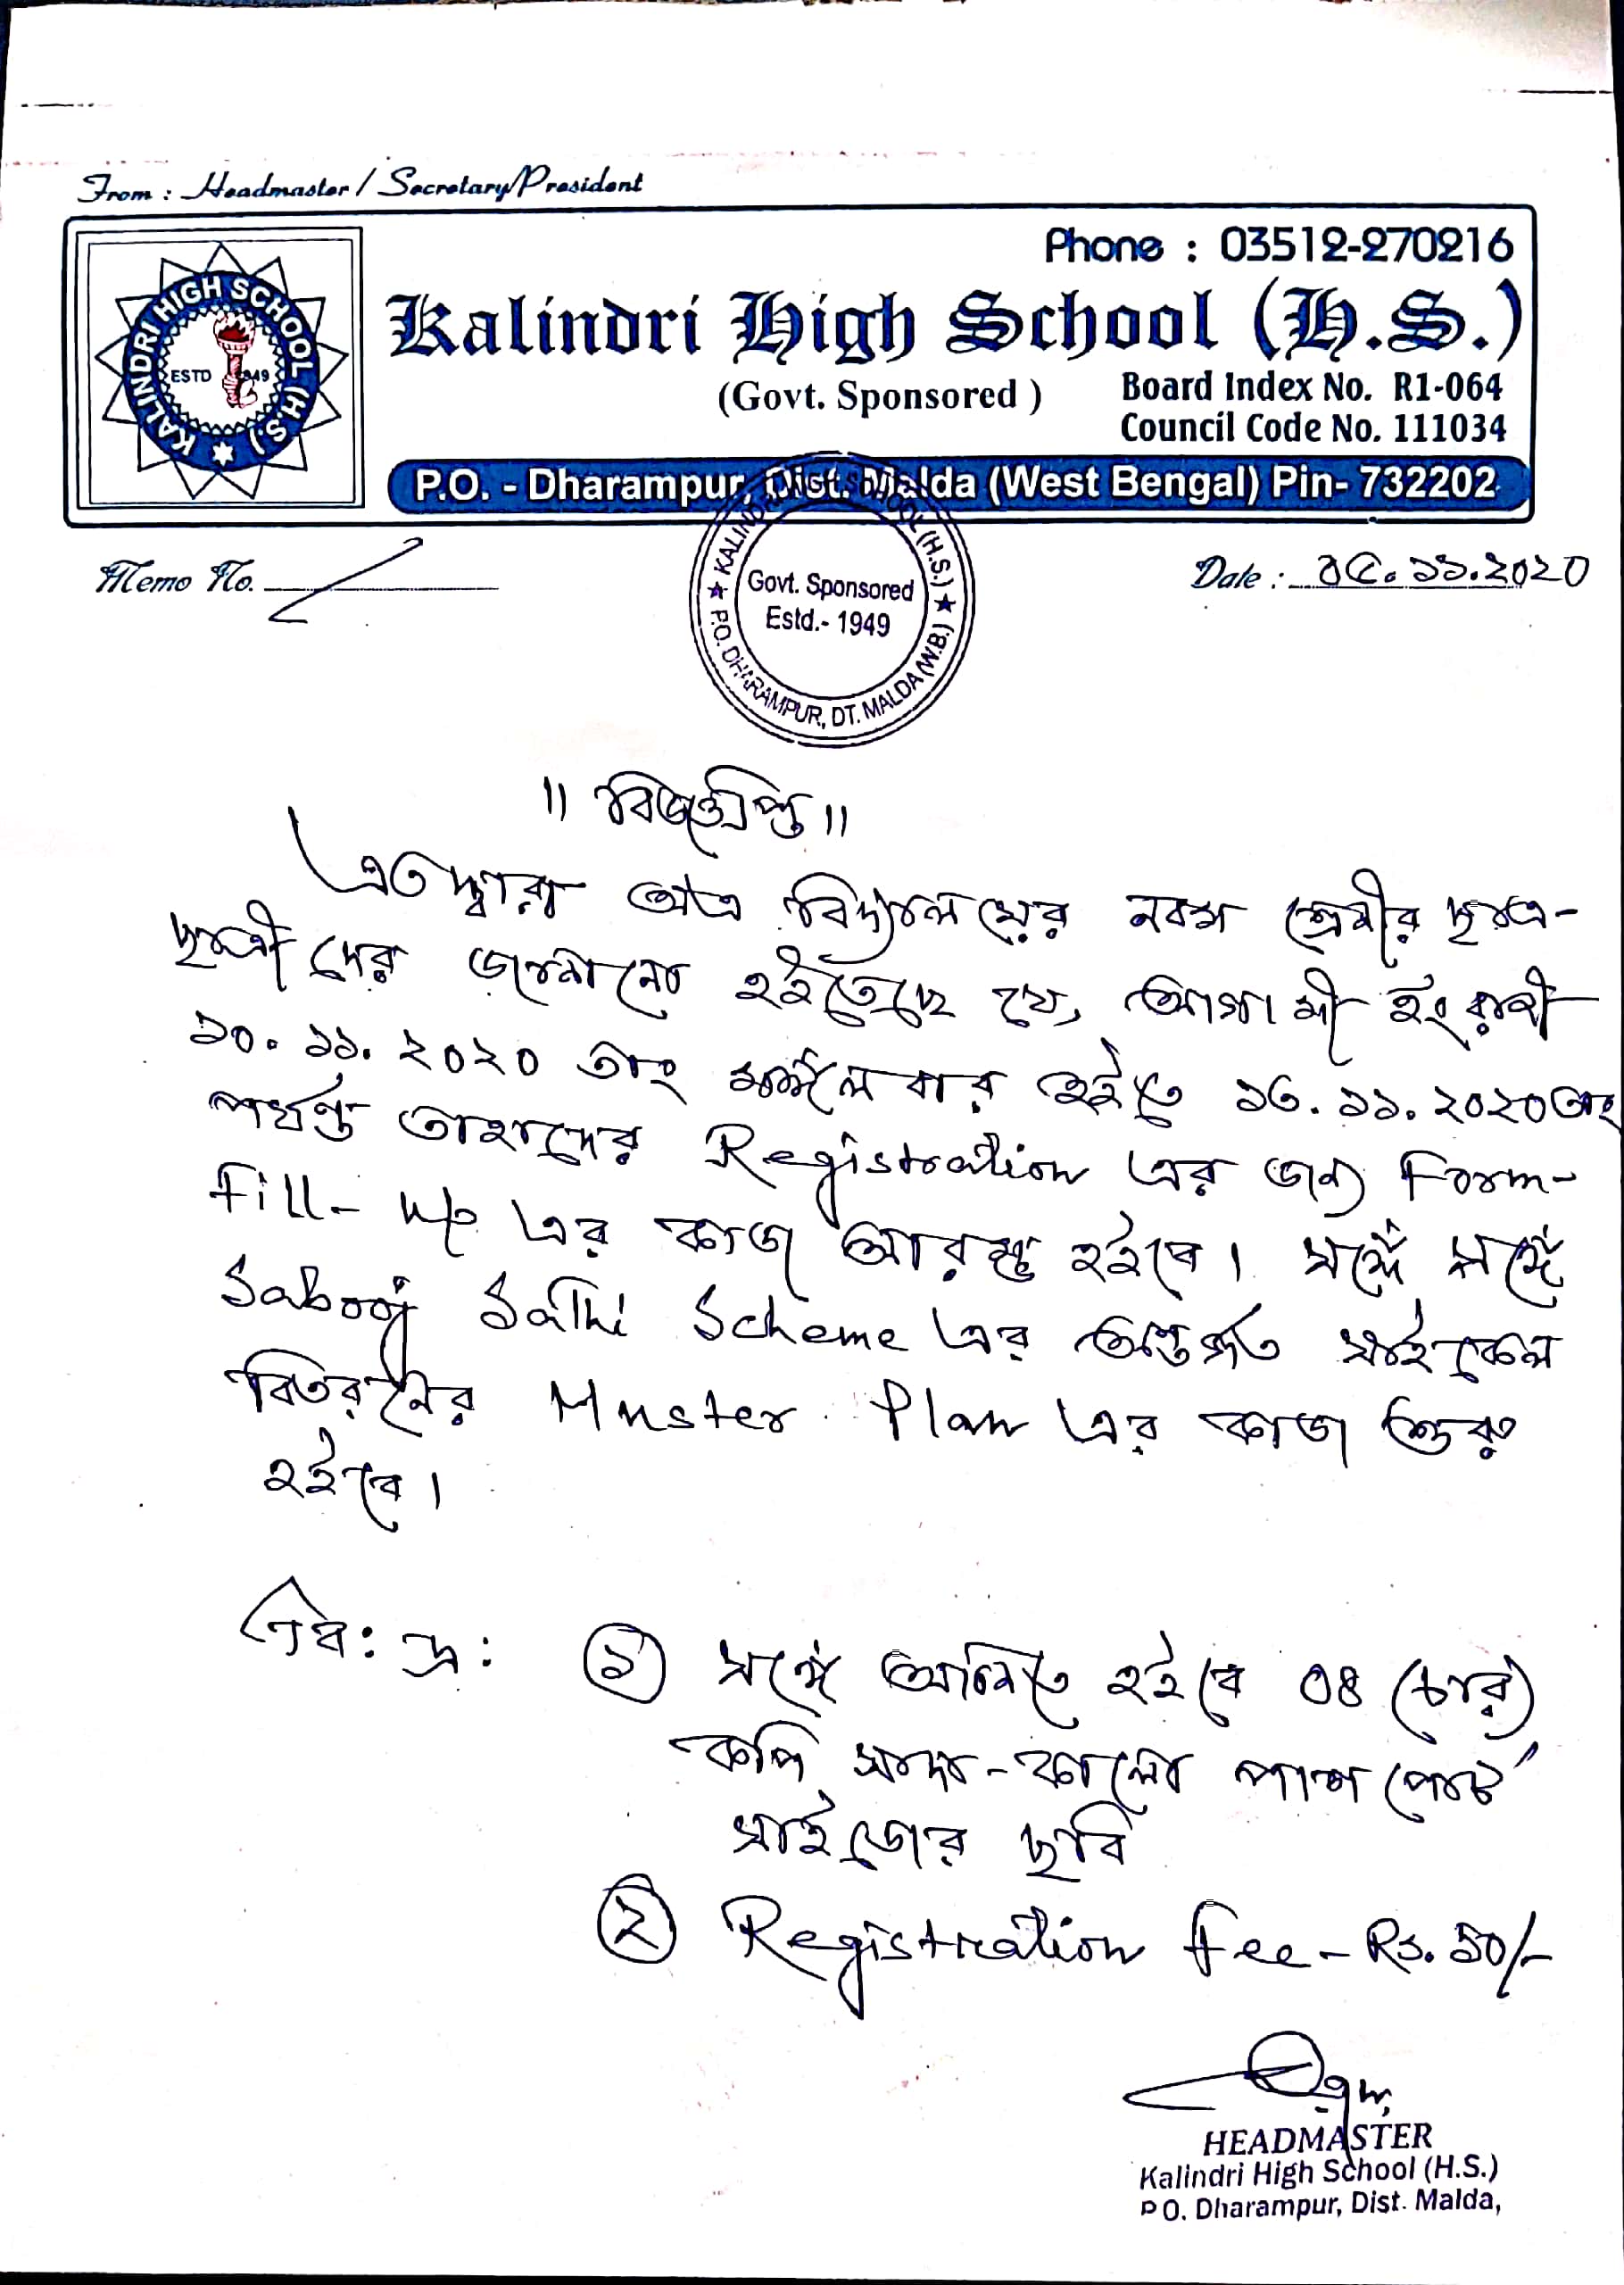 From : Headmaster / Secretary/President
Phone : 03512-270216
KALINDRI HIGH SCHOOL (H.S.)
ESTD 1949
Kalindri High School (H.S.)
(Govt. Sponsored )
Board Index No. R1-064
Council Code No. 111034
P.O. - Dharampur, Dist. Malda (West Bengal) Pin- 732202
Memo No.
Date : ০৫.১১.২০২০
KALINDRI HIGH SCHOOL (H.S.)
Govt. Sponsored
Estd.- 1949
P.O. DHARAMPUR, DT. MALDA (W.B.)
॥ বিজ্ঞপ্তি ॥
এতদ্বারা অত্র বিদ্যালয়ের নবম শ্রেণীর ছাত্র-
ছাত্রীদের জানানো হইতেছে যে, আগামী ইংরাজী
১০.১১.২০২০ তাং মঙ্গলবার হইতে ১৩.১১.২০২০ তাং
পর্যন্ত তাহাদের Registration এর জন্য Form-
fill-up এর কাজ আরম্ভ হইবে। সঙ্গে সঙ্গে
Sabooj Sathi Scheme এর অন্তর্গত সাইকেল
বিতরনের Muster Plan এর কাজ শুরু
হইবে।
বি: দ্র: ১ সঙ্গে আনিতে হইবে ০৪ (চার)
কপি সাদা-কালো পাশপোর্ট
সাইজের ছবি
২ Registration Fee - Rs. 50/-
HEADMASTER
Kalindri High School (H.S.)
P.O. Dharampur, Dist. Malda,